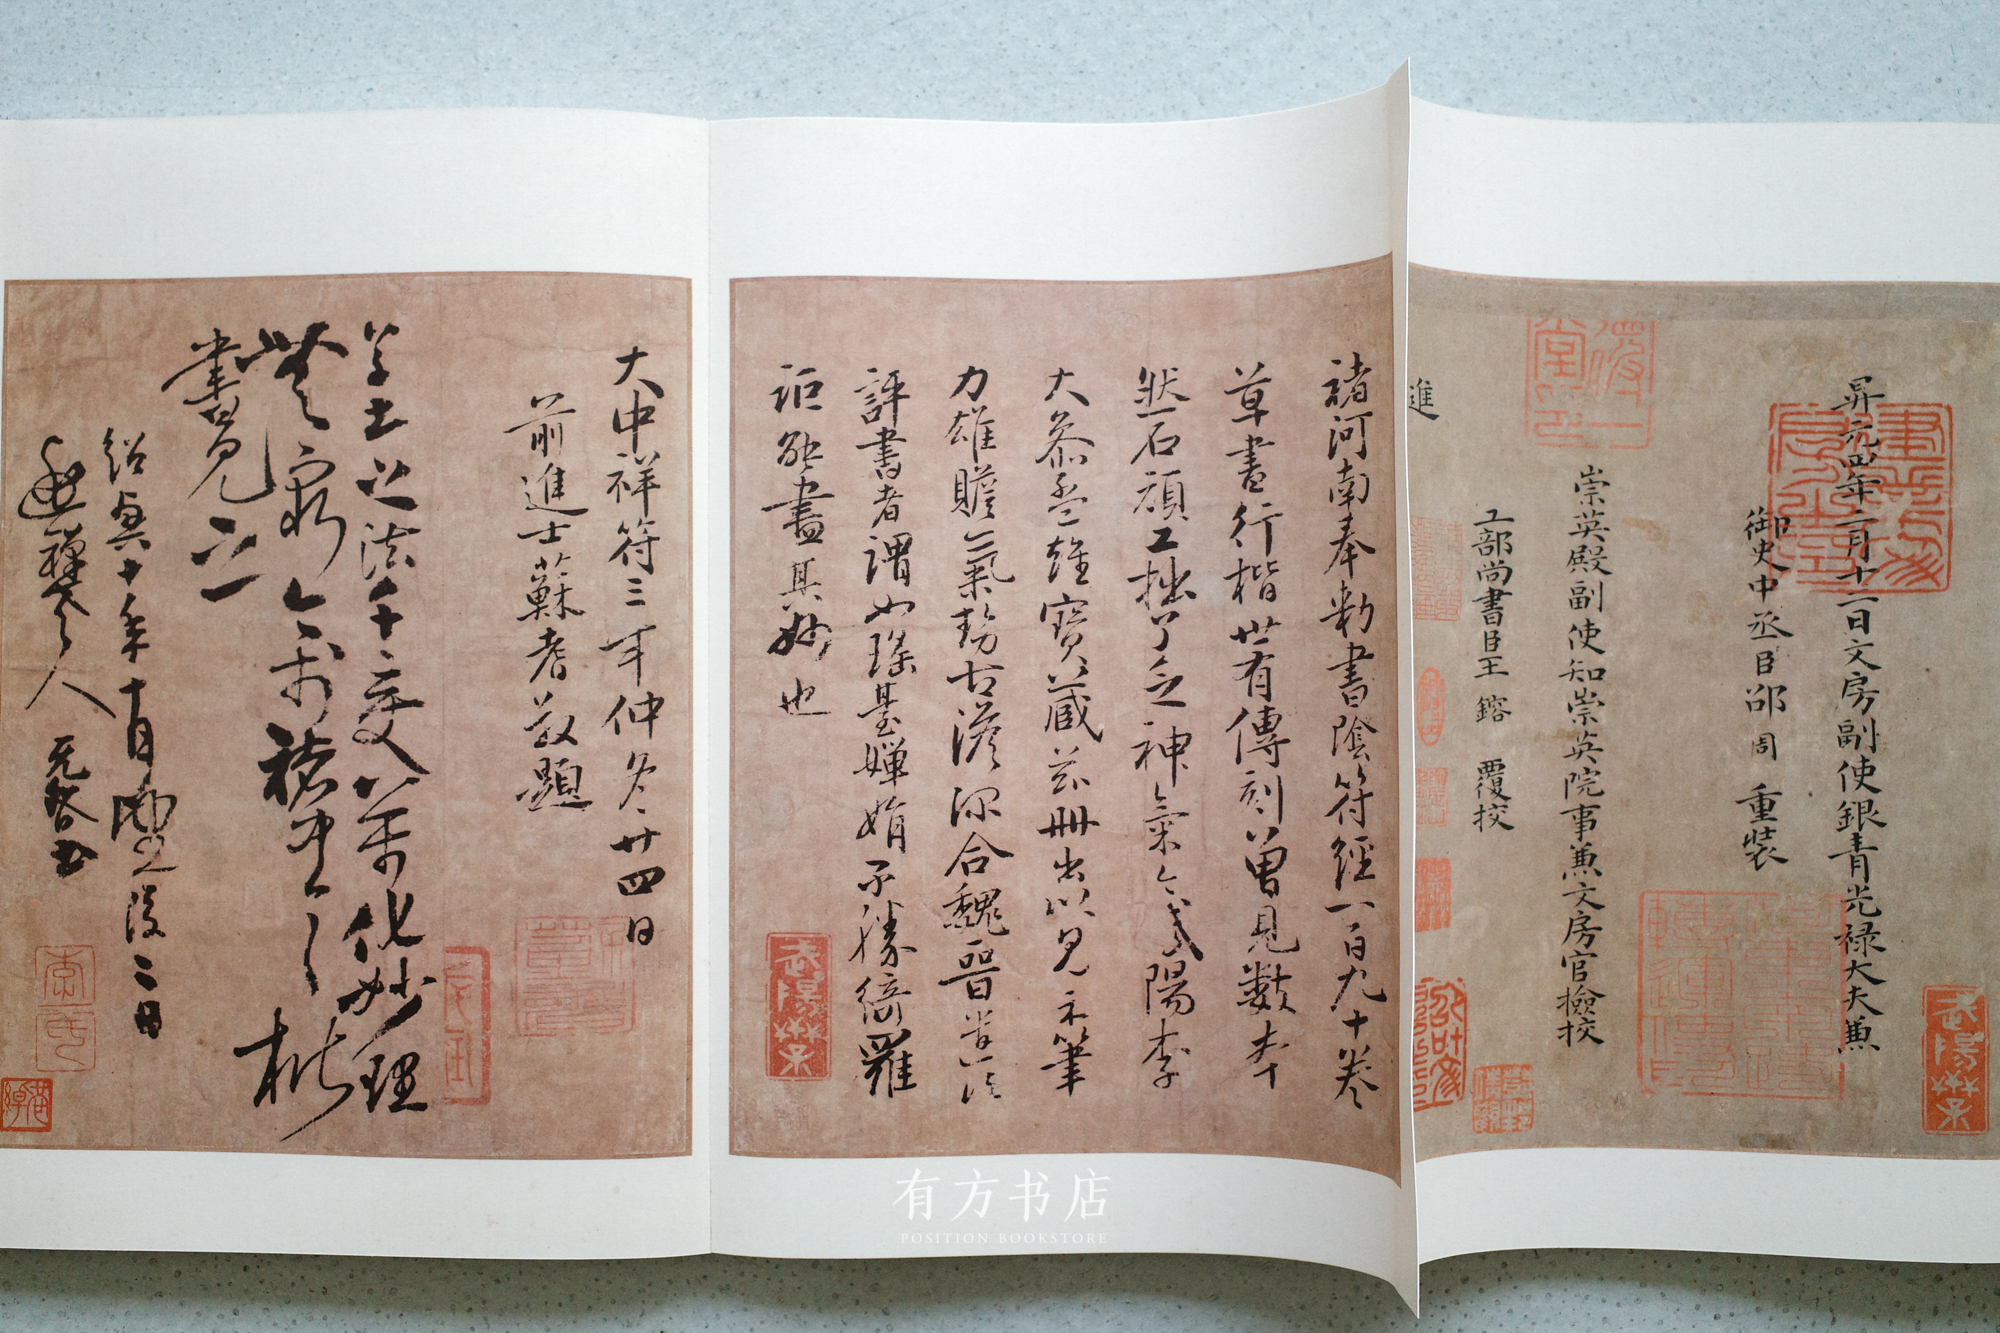 昇元四年二月十一日文房副使銀青光祿大夫兼
御史中丞臣邵周 重裝
崇英殿副使知崇英院事兼文房官撿挍
工部尚書臣王鎔 覆挍
進
褚河南奉勅書陰符經一百九十卷
草書行楷世有傳刻曾見數本
然石頑工拙了乏神氣今武陽李
大叅至雄寶蔵茲冊出以見示筆
力雄贍氣勁古澹深合魏晉者
評書者謂如瑤臺嬋娟不勝綺羅
詎能盡其妙也
大中祥符三年仲冬廿四日
前進士蘇耆敬題
草書之法千變萬化妙理
無窮今於褚中令
書見之
紹興十年十月 後二日
逃禪老人 无咎書
有方书店
POSITION BOOKSTORE